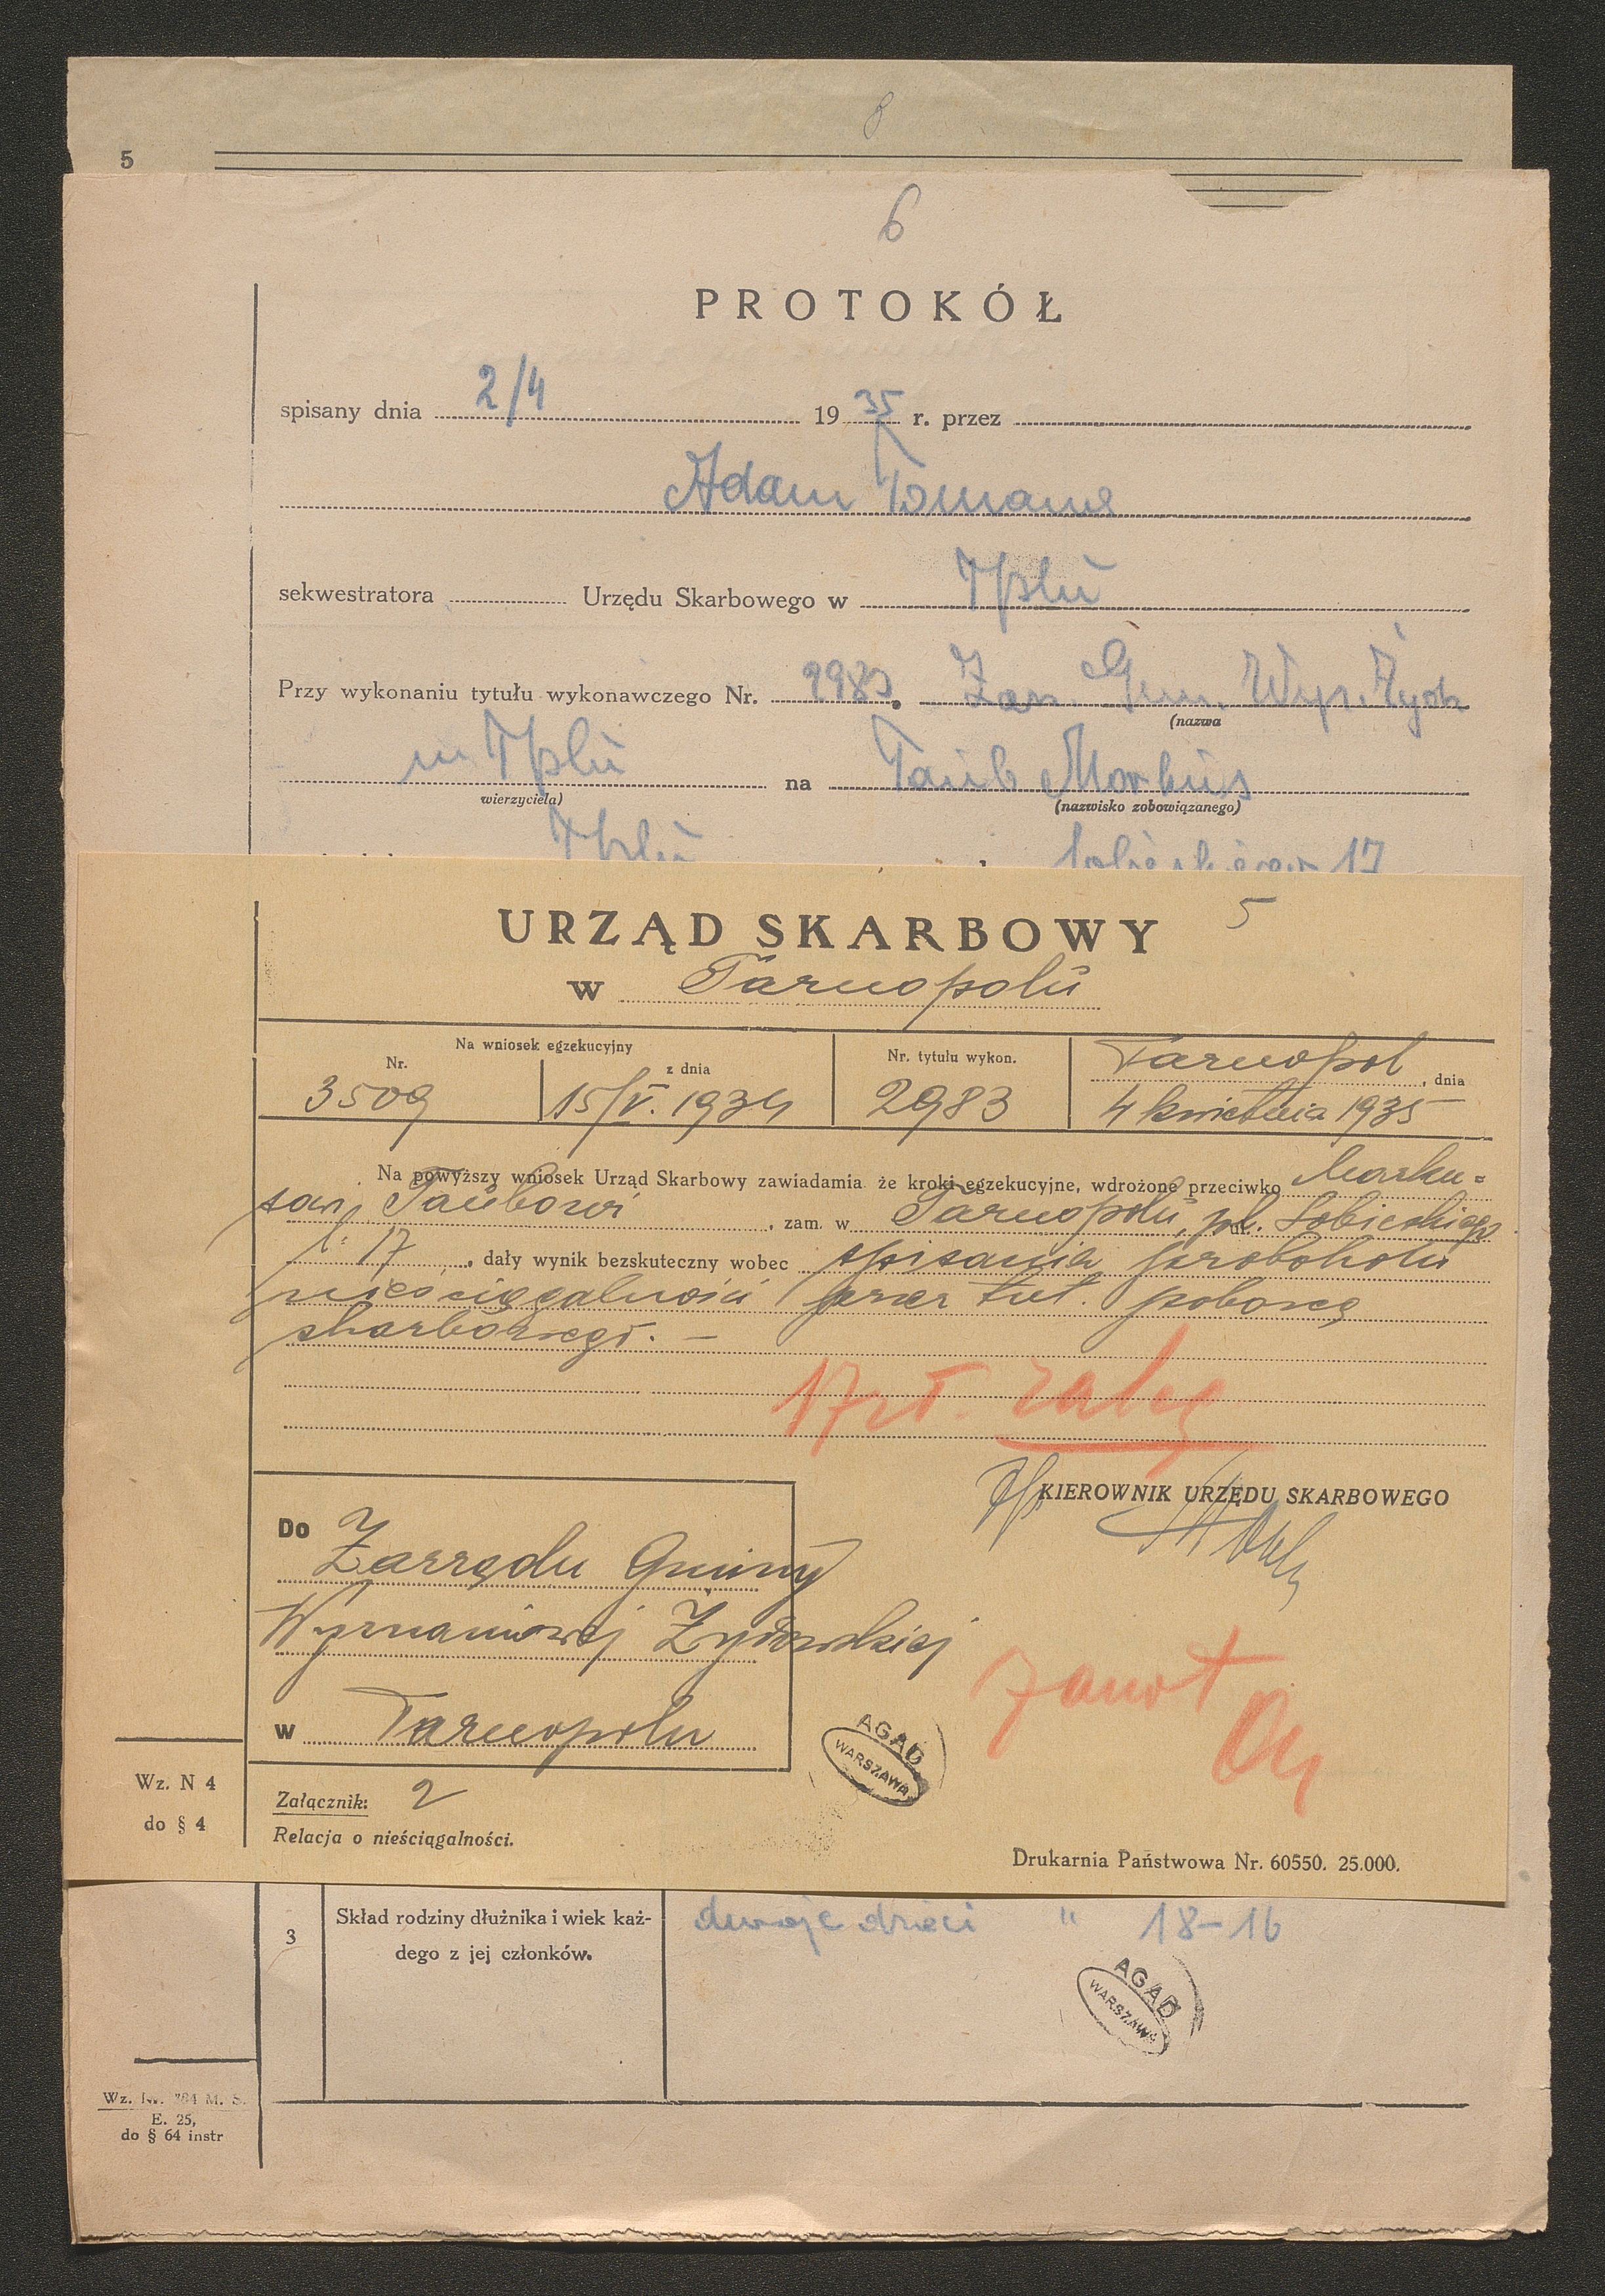 8
5
6
PROTOKÓŁ
spisany dnia 2/4 1935 r. przez
Adam
sekwestratora Urzędu Skarbowego w Tplu
Przy wykonaniu tytułu wykonawczego Nr. 2983. Zarz. Gm. Wyz. Żyd.
(nazwa
w Tplu na Taub Markus
wierzyciela) (nazwisko zobowiązanego)
Tplu 17
5
URZĄD SKARBOWY
w Tarnopolu
Na wniosek egzekucyjny
Nr. 3509 z dnia 15/V. 1934
Nr. tytułu wykon. 2983
Tarnopol, dnia
4 kwietnia 1935
Na powyższy wniosek Urząd Skarbowy zawiadamia że kroki egzekucyjne, wdrożone przeciwko Marku=
sowi Taubowi, zam. w Tarnopolu, ul. Sobieskiego
l: 17, dały wynik bezskuteczny wobec spisania protokołu
nieściągalności przez tut. poborcę
skarbowego. —
17 zł.
KIEROWNIK URZĘDU SKARBOWEGO
Do Zarządu Gminy
Wyznaniowej Żydowskiej
w Tarnopolu
AGAD
WARSZAWA
Wz. N 4
do § 4
Załącznik: 2
Relacja o nieściągalności.
Drukarnia Państwowa Nr. 60550. 25.000.
3 Skład rodziny dłużnika i wiek każ-
dego z jej członków.
dwoje dzieci " 18-16
AGAD
WARSZAWA
Wz. Nr. M. S.
E. 25,
do § 64 instr